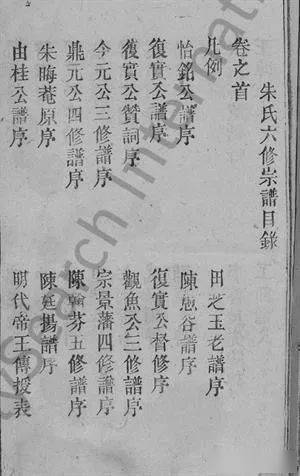 朱氏六修宗譜目錄
卷之首
凡例
怡銘公譜序
復實公譜序
復實公贊詞序
今元公三修譜序
鼎元公四修譜序
朱晦菴原序
由桂公譜序
田芝玉老譜序
陳懋谷譜序
復實公督修序
觀魚公三修譜序
宗景藩四修譜序
陳翰芬五修譜序
陳廷揚譜序
明代帝王傳授表
Research Internat